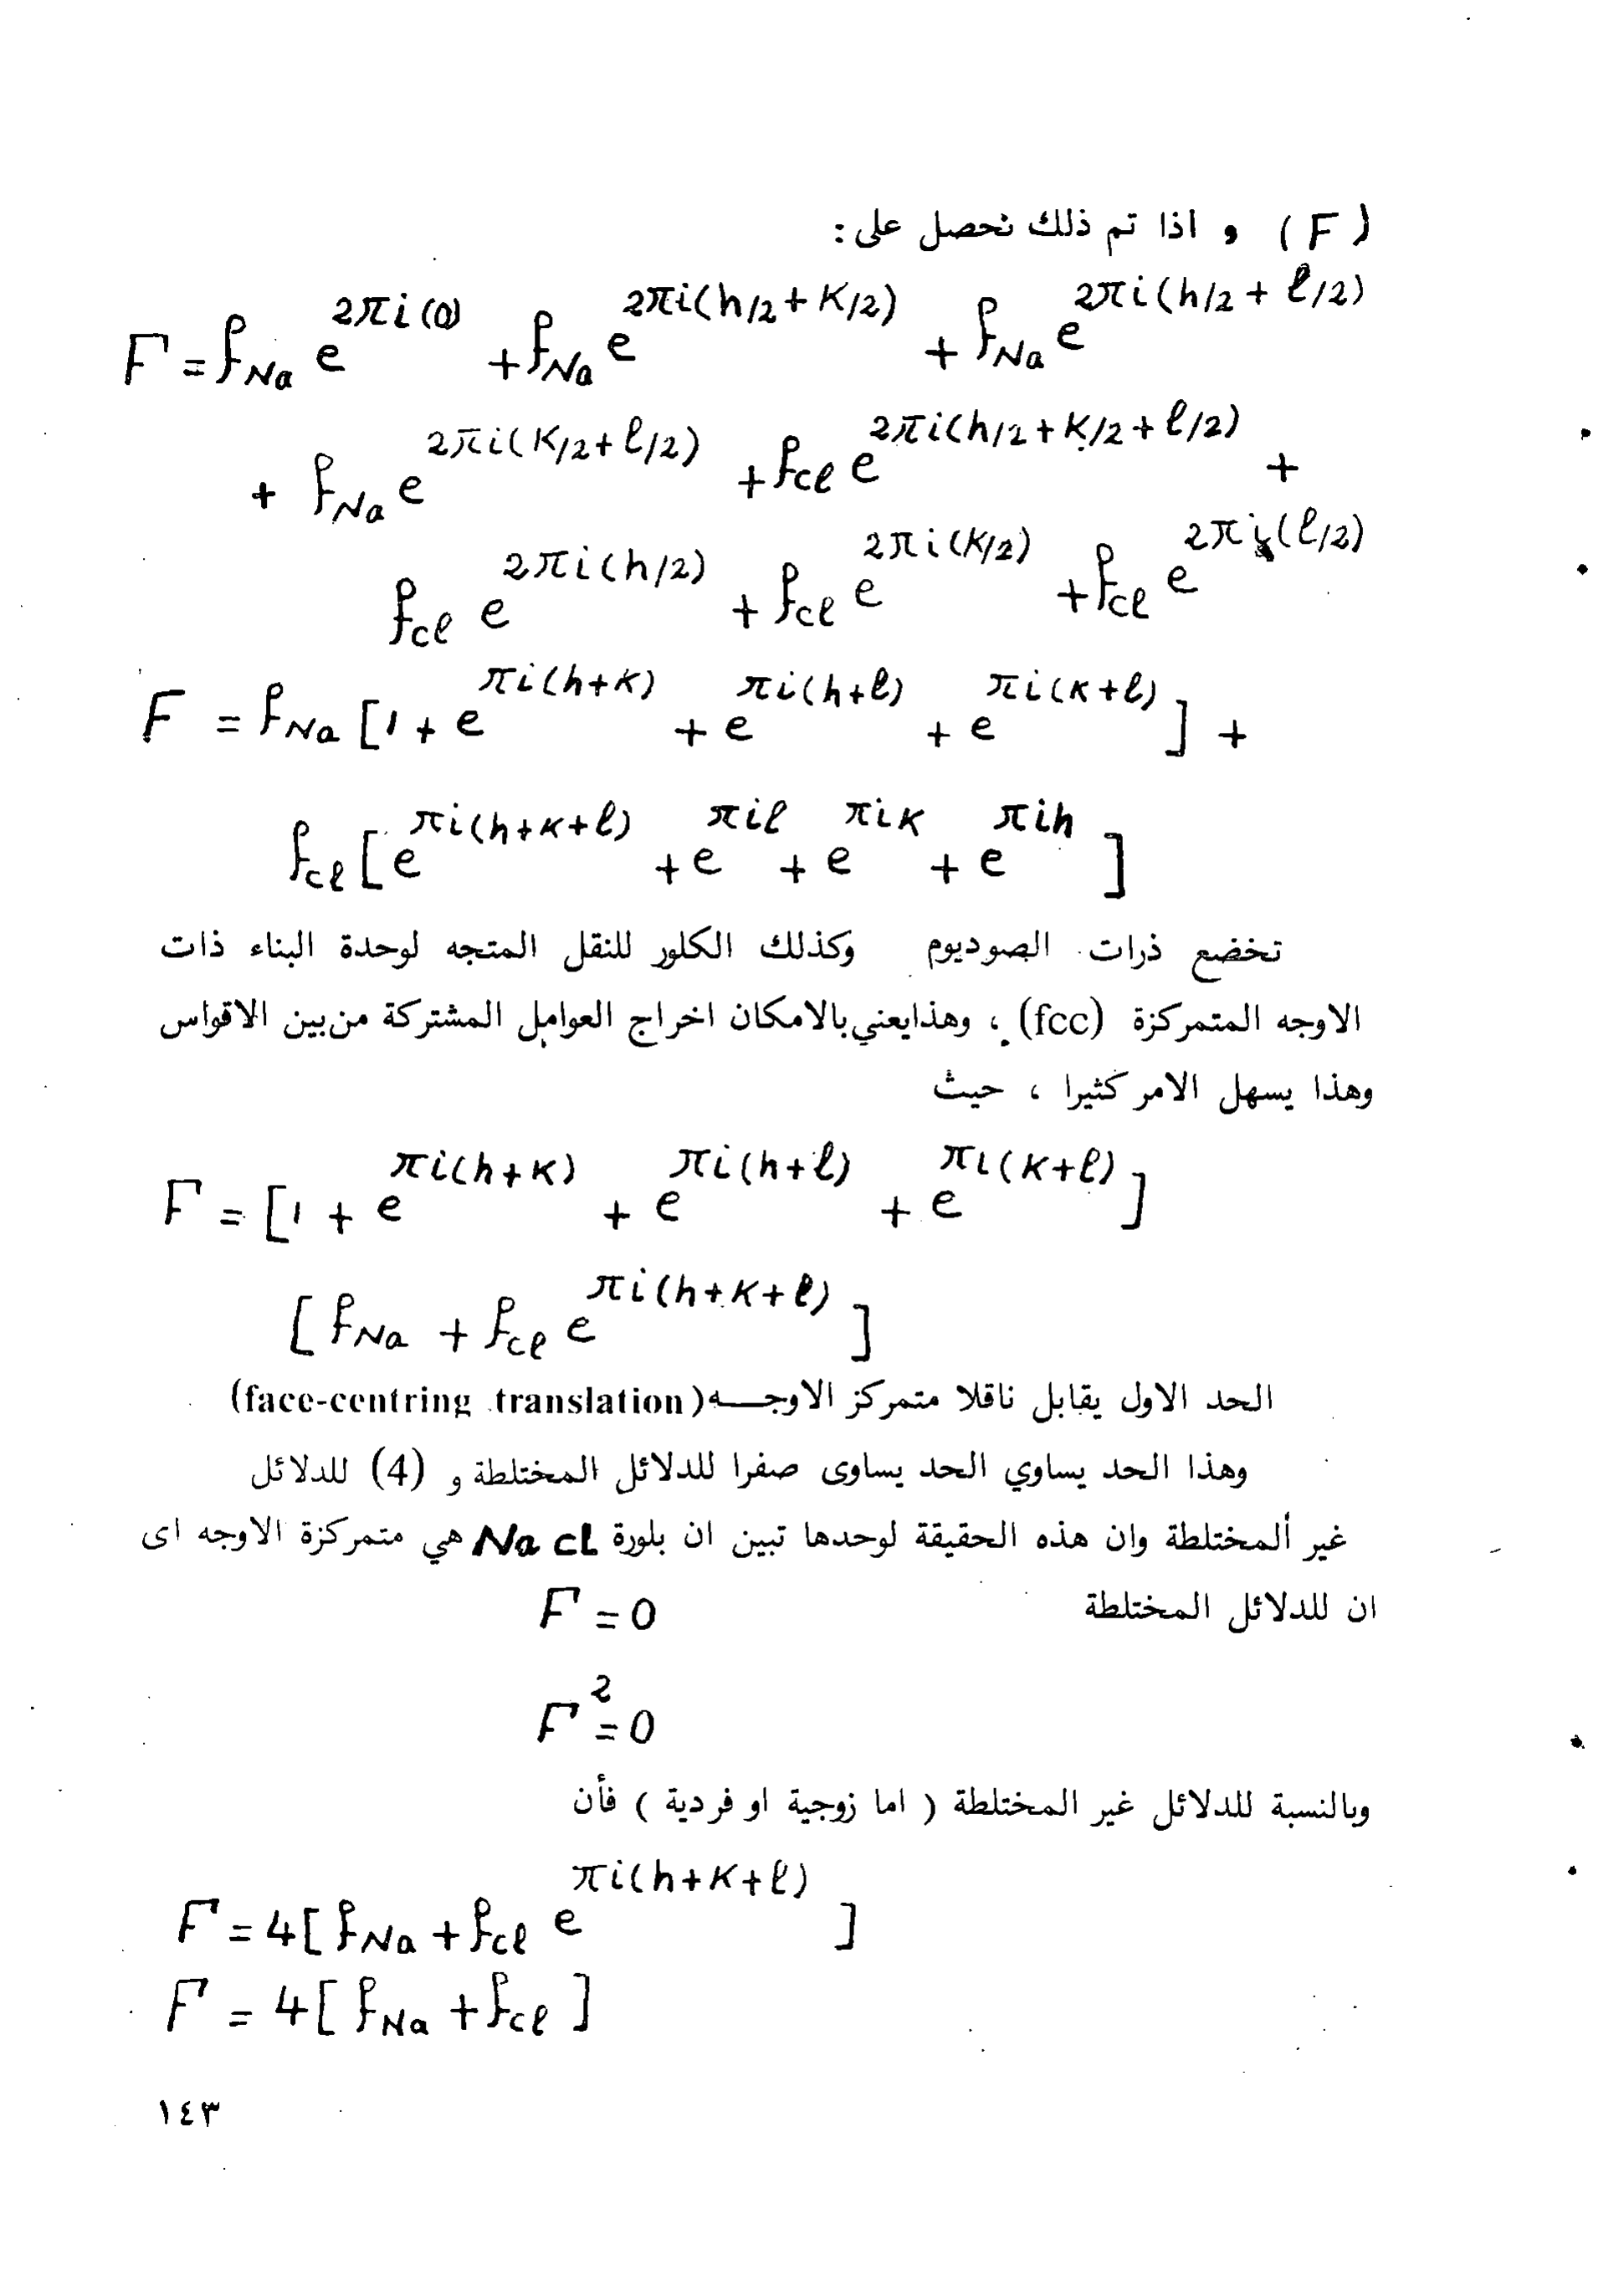 (F) و اذا تم ذلك نحصل على :
F = f_Na e^{2πi(0)} + f_Na e^{2πi(h/2+K/2)} + f_Na e^{2πi(h/2+ℓ/2)}
+ f_Na e^{2πi(K/2+ℓ/2)} + f_cℓ e^{2πi(h/2+K/2+ℓ/2)} +
f_cℓ e^{2πi(h/2)} + f_cℓ e^{2πi(K/2)} + f_cℓ e^{2πi(ℓ/2)}
F = f_Na [1 + e^{πi(h+K)} + e^{πi(h+ℓ)} + e^{πi(K+ℓ)}] +
f_cℓ [e^{πi(h+K+ℓ)} + e^{πiℓ} + e^{πiK} + e^{πih}]
تخضع ذرات الصوديوم وكذلك الكلور للنقل المتجه لوحدة البناء ذات
الاوجه المتمركزة (fcc) ، وهذا يعني بالامكان اخراج العوامل المشتركة من بين الاقواس
وهذا يسهل الامر كثيرا ، حيث
F = [1 + e^{πi(h+K)} + e^{πi(h+ℓ)} + e^{πi(K+ℓ)}]
[f_Na + f_cℓ e^{πi(h+K+ℓ)}]
الحد الاول يقابل ناقلا متمركز الاوجـــه (face-centring translation)
وهذا الحد يساوي الحد يساوى صفرا للدلائل المختلطة و (4) للدلائل
غير ألمختلطة وان هذه الحقيقة لوحدها تبين ان بلورة Na cL هي متمركزة الاوجه اى
ان للدلائل المختلطة F = 0
F^2 = 0
وبالنسبة للدلائل غير المختلطة ( اما زوجية او فردية ) فأن
F = 4[f_Na + f_cℓ e^{πi(h+K+ℓ)}]
F = 4[f_Na + f_cℓ]
١٤٣